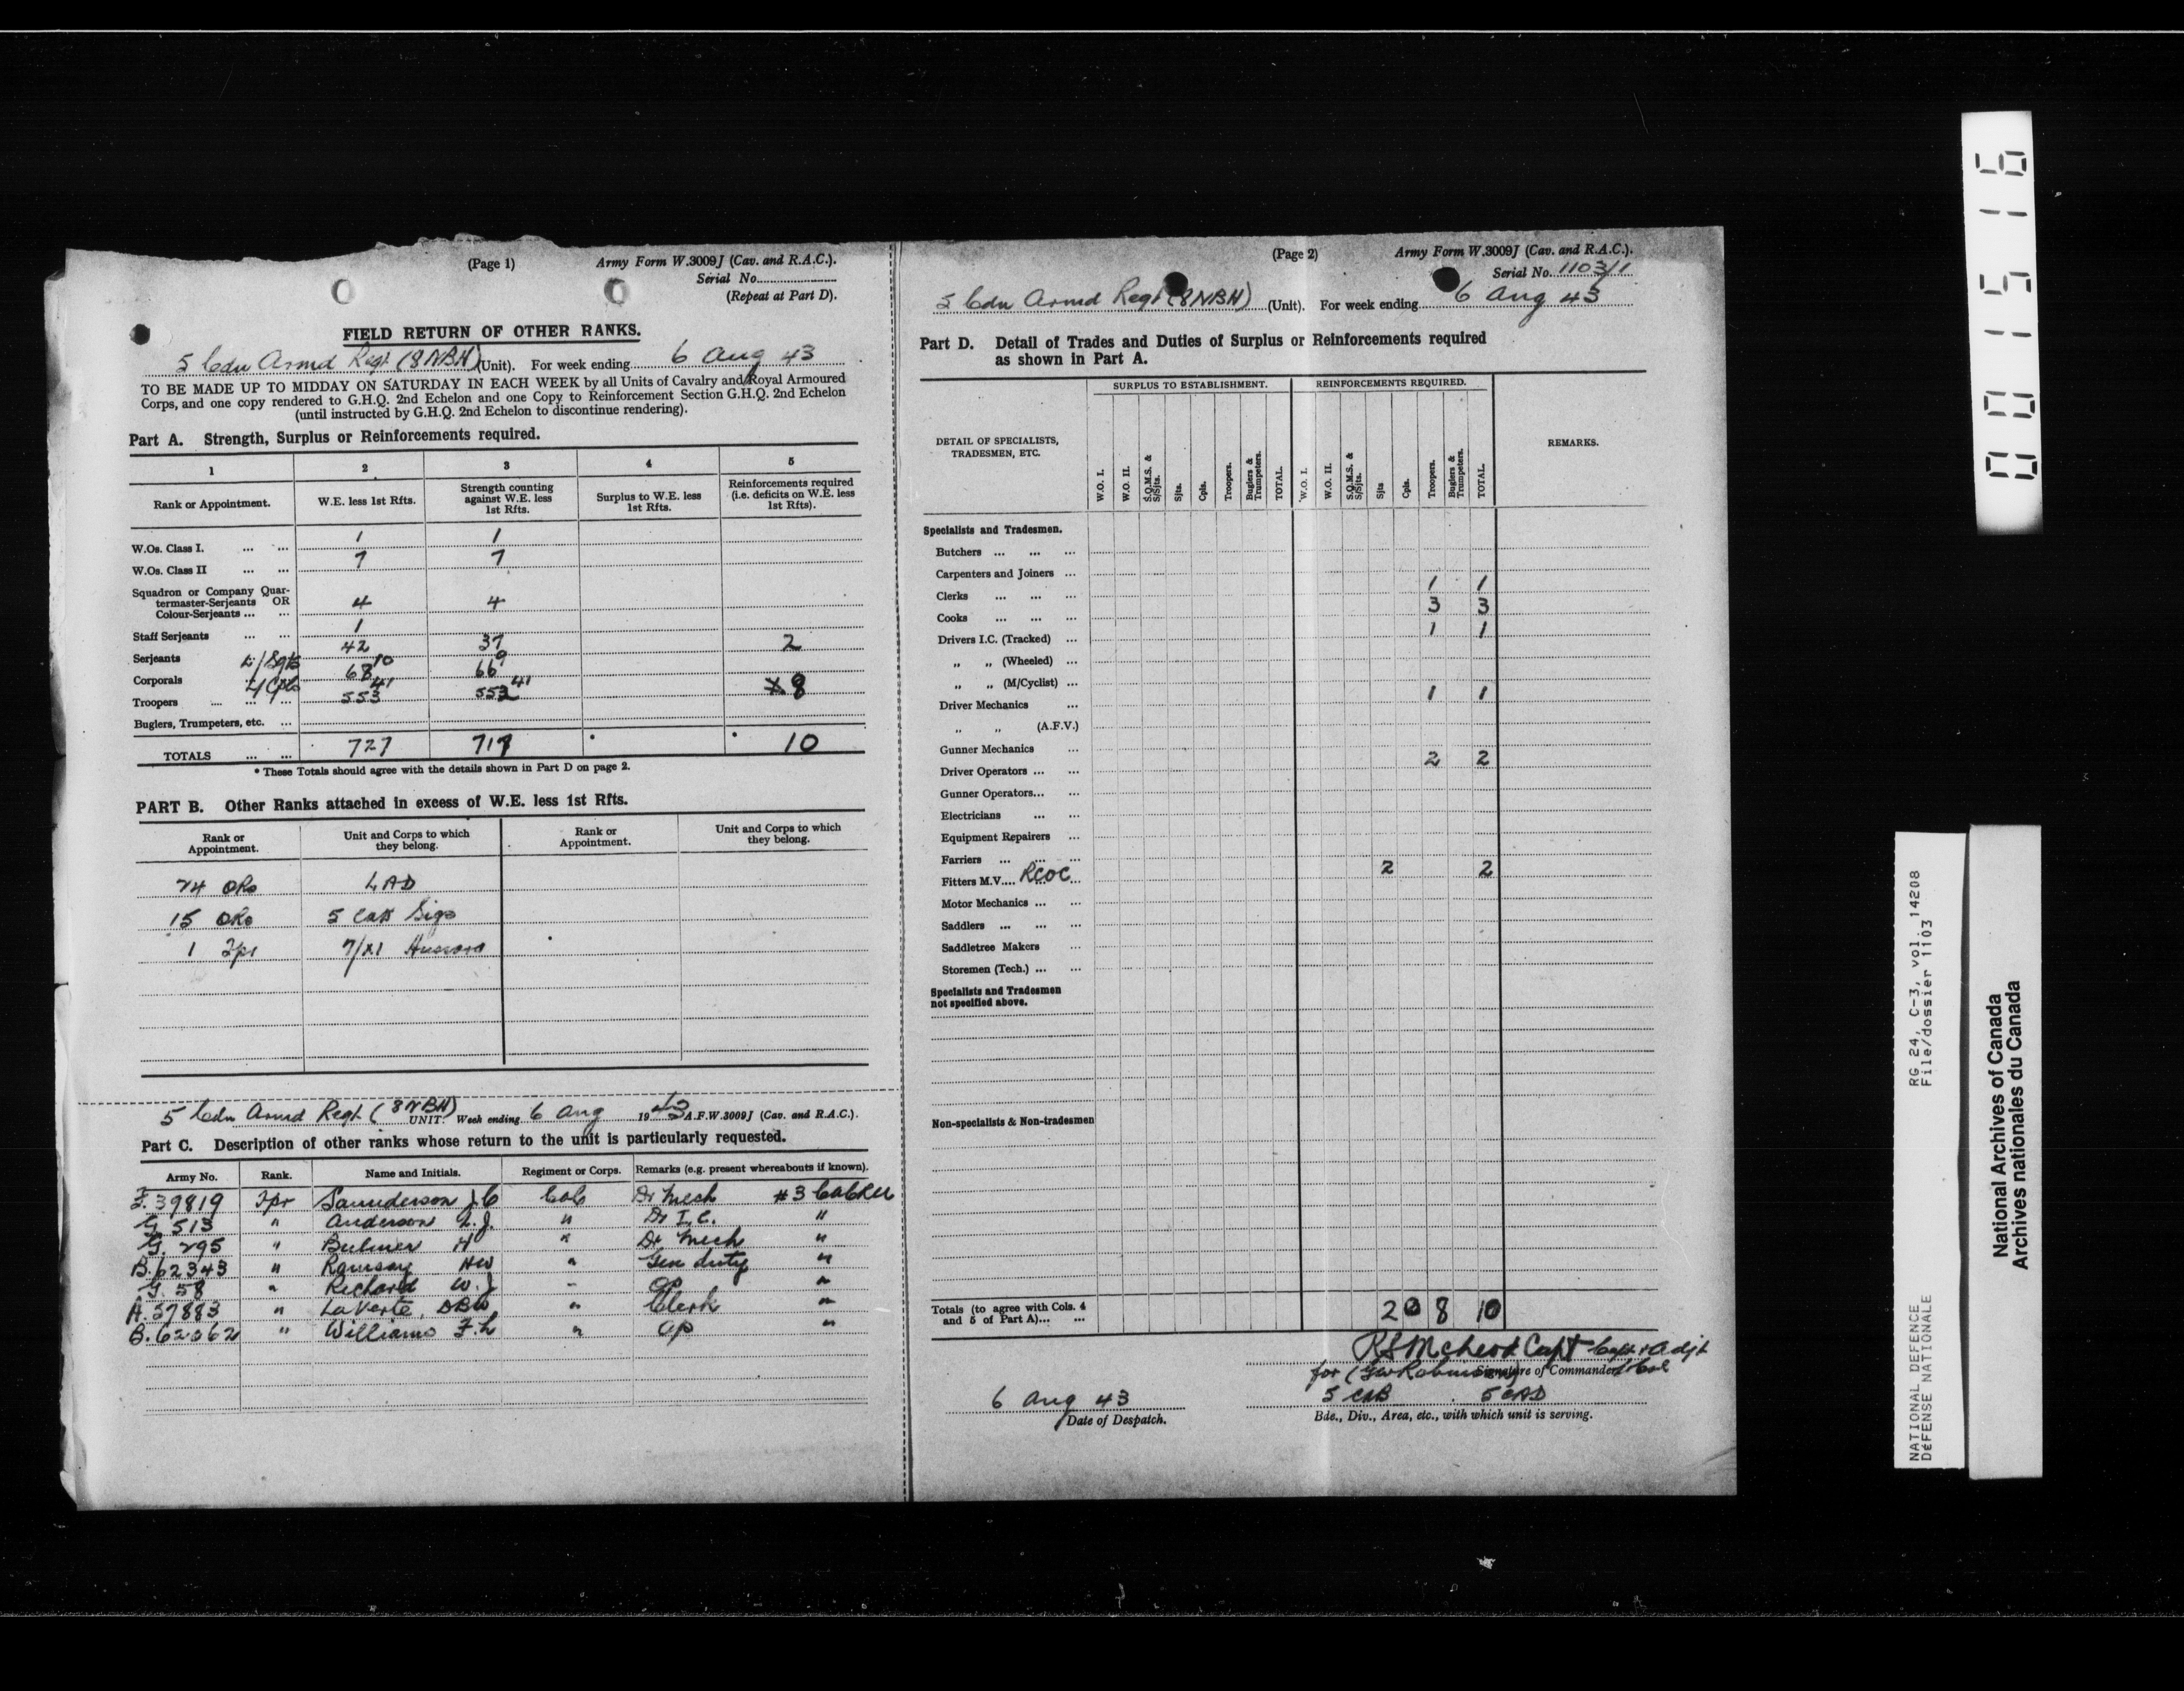 (Page 1)
Army Form W.3009J (Cav. and R.A.C.).
Serial No.
(Repeat at Part D).
FIELD RETURN OF OTHER RANKS.
5 Cdn Armd Regt (8 NBH) (Unit). For week ending 6 Aug 43
TO BE MADE UP TO MIDDAY ON SATURDAY IN EACH WEEK by all Units of Cavalry and Royal Armoured
Corps, and one copy rendered to G.H.Q. 2nd Echelon and one Copy to Reinforcement Section G.H.Q. 2nd Echelon
(until instructed by G.H.Q. 2nd Echelon to discontinue rendering).
Part A. Strength, Surplus or Reinforcements required.
1 2 3 4 5
Rank or Appointment. W.E. less 1st Rfts. Strength counting against W.E. less 1st Rfts. Surplus to W.E. less 1st Rfts. Reinforcements required (i.e. deficits on W.E. less 1st Rfts).
W.Os. Class I. ... ... 1 1
W.Os. Class II ... ... 7 7
Squadron or Company Quar-
termaster-Serjeants OR
Colour-Serjeants ... ... 4 4
Staff Serjeants ... ... 1
Serjeants 42 37 2
L/Sgts 10 9
Corporals 68 66
L/Cpls 41 41
Troopers ... ... ... 553 552 8
Buglers, Trumpeters, etc. ...
TOTALS ... ... 727 717 * * 10
* These Totals should agree with the details shown in Part D on page 2.
PART B. Other Ranks attached in excess of W.E. less 1st Rfts.
Rank or Appointment. Unit and Corps to which they belong. Rank or Appointment. Unit and Corps to which they belong.
24 ORs LAD
15 ORs 5 CAB Sigs
1 Tpr 7/21 Hussars
5 Cdn Armd Regt. (8 NBH) UNIT. Week ending 6 Aug 1943 A.F.W.3009J (Cav. and R.A.C.).
Part C. Description of other ranks whose return to the unit is particularly requested.
Army No. Rank. Name and Initials. Regiment or Corps. Remarks (e.g. present whereabouts if known).
F.39819 Tpr Saunderson J C CAC Dr Mech #3 CACRU
G 513 " Anderson A.J. " Dr I.C. "
G. 295 " Bulmer H " Dr Mech "
B.62343 " Ramsay HW " Gen duty "
G. 58 " Richard W.J " Op "
A.57883 " LaVerte, DBW " Clerk "
B.62062 " Williams F.L " Op "
(Page 2)
Army Form W.3009J (Cav. and R.A.C.).
Serial No. 1103/1
5 Cdn Armd Regt (8NBH) (Unit). For week ending 6 Aug 43
Part D. Detail of Trades and Duties of Surplus or Reinforcements required
as shown in Part A.
SURPLUS TO ESTABLISHMENT. REINFORCEMENTS REQUIRED.
DETAIL OF SPECIALISTS, TRADESMEN, ETC. W.O. I. W.O. II. S.Q.M.S. & S/Sjts. Sjts. Cpls. Troopers. Buglers & Trumpeters. TOTAL. W.O. I. W.O. II. S.Q.M.S. & S/Sjts. Sjts Cpls. Troopers. Buglers & Trumpeters. TOTAL. REMARKS.
Specialists and Tradesmen.
Butchers ... ... ...
Carpenters and Joiners ...
Clerks ... ... ... 1 1
Cooks ... ... ... 3 3
Drivers I.C. (Tracked) ... 1 1
" " (Wheeled) ...
" " (M/Cyclist) ...
Driver Mechanics ... 1 1
" " (A.F.V.)
Gunner Mechanics ...
Driver Operators ... ... 2 2
Gunner Operators... ...
Electricians ... ...
Equipment Repairers ...
Farriers ... ... ...
Fitters M.V.... RCOC 2 2
Motor Mechanics ... ...
Saddlers ... ... ...
Saddletree Makers ...
Storemen (Tech.) ... ...
Specialists and Tradesmen
not specified above.
Non-specialists & Non-tradesmen
Totals (to agree with Cols. 4
and 5 of Part A)... ... 2 0 8 10
RS McLeod Capt Capt & Adjt
for (GW Robinson) Signature of Commander Lt Col
5 CAB 5 CAD
6 Aug 43
Date of Despatch.
Bde., Div., Area, etc., with which unit is serving.
001516
RG 24, C-3, vol. 14208
File/dossier 1103
NATIONAL DEFENCE
DÉFENSE NATIONALE
National Archives of Canada
Archives nationales du Canada